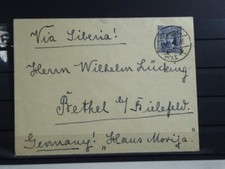 Via Siberia!
Herrn Wilhelm Lücking
Bethel b/ Bielefeld.
Germany! „Haus Morija."